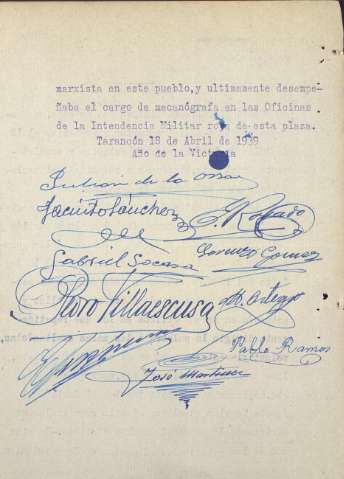 marxista en este pueblo, y ultimamente desempe-
ñaba el cargo de mecanógrafa en las Oficinas
de la Intendencia Militar roja de esta plaza.
Tarancón 18 de Abril de 1939
Año de la Victoria
Julian de la Ossa
Jacinto Sánchez
Gabriel Socasa
Lorenzo Gomez
Floro Villaescusa
Pablo Ramos
José Martinez